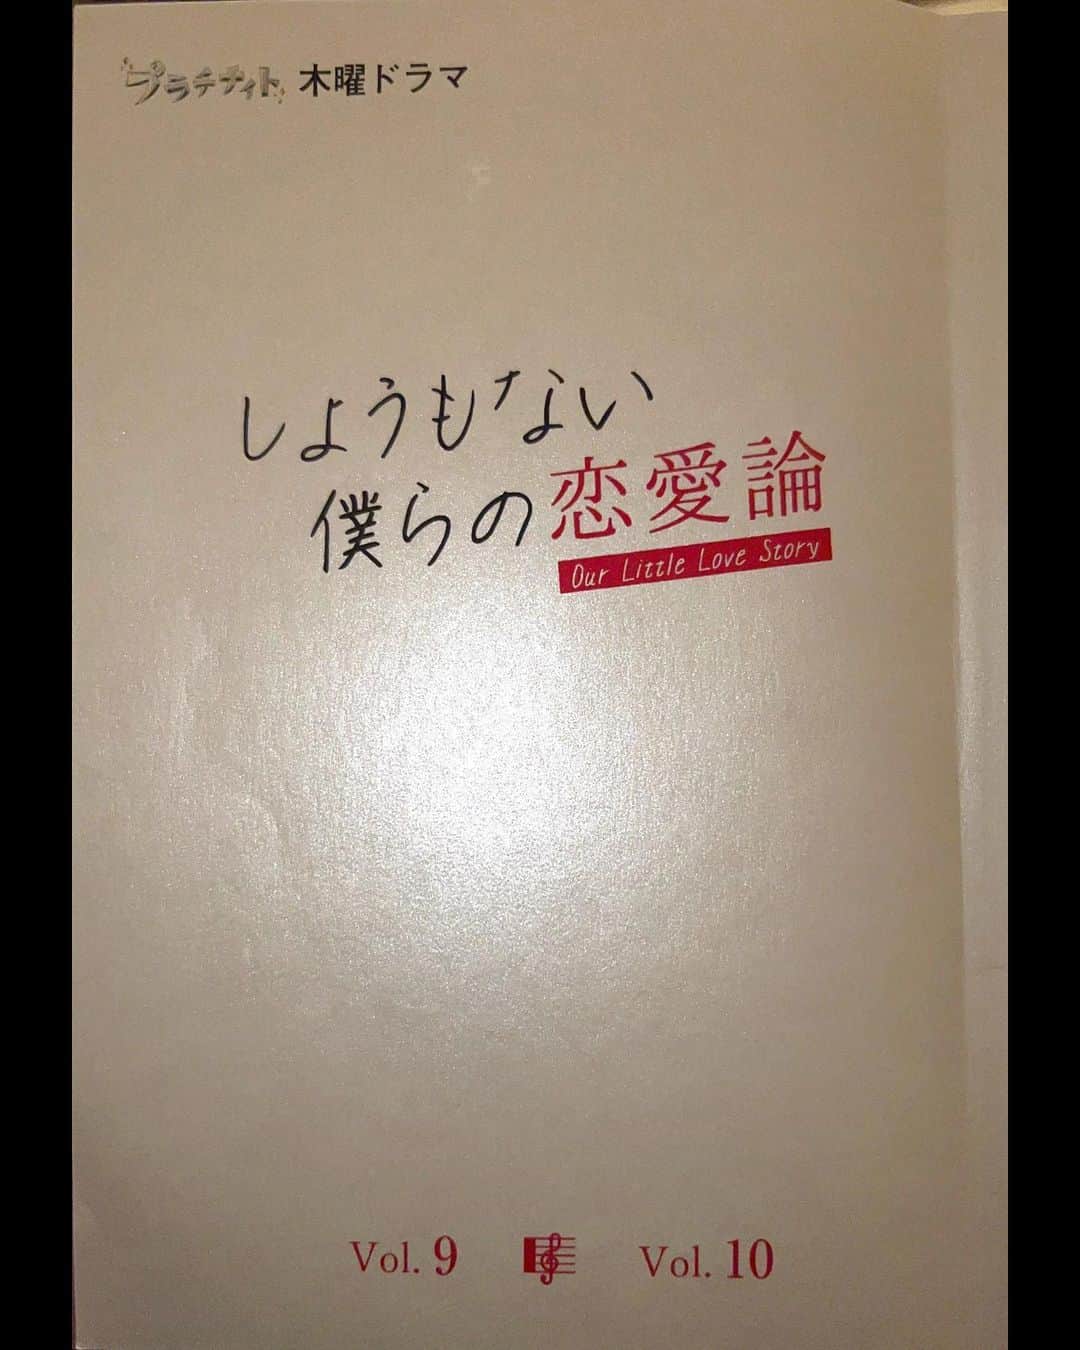 プラチナイト 木曜ドラマ
しょうもない
僕らの恋愛論
Our Little Love Story
Vol. 9 Vol. 10